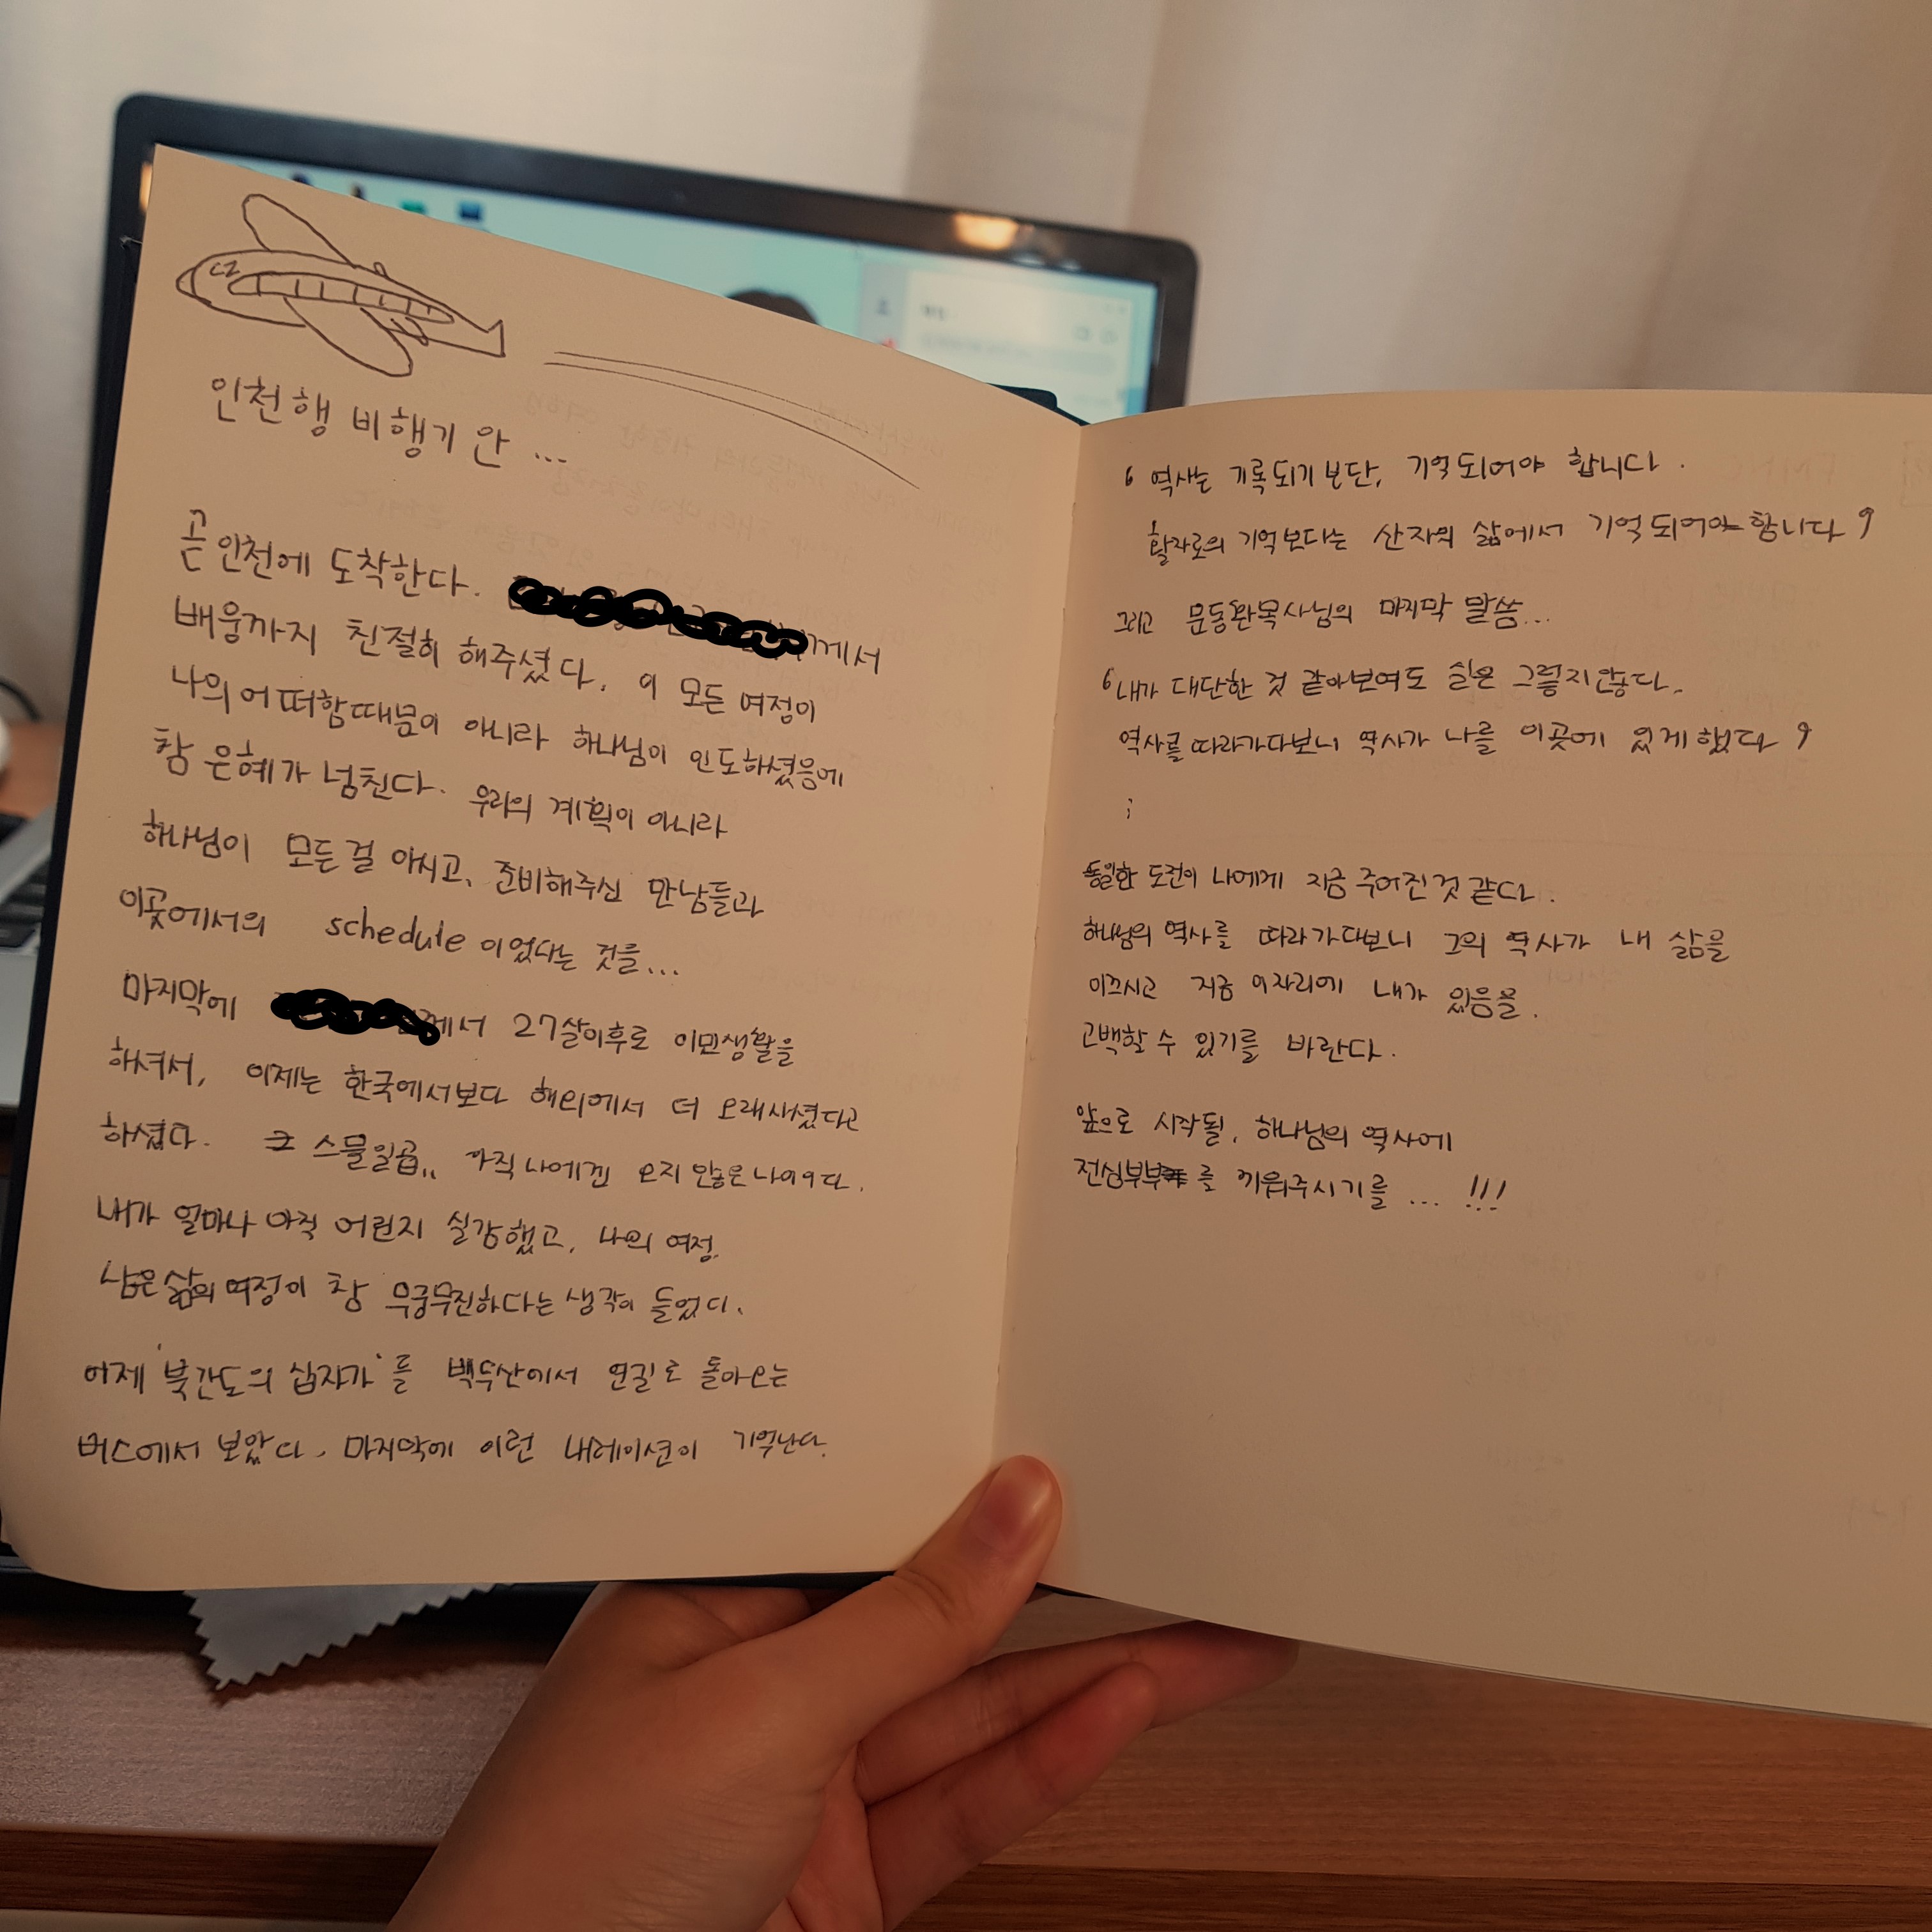 CZ
인천행 비행기 안 ...
곧 인천에 도착한다. 께서
배웅까지 친절히 해주셨다. 이 모든 여정이
나의 어떠함때문이 아니라 하나님이 인도하셨음에
참 은혜가 넘친다. 우리의 계획이 아니라
하나님이 모든걸 아시고, 준비해주신 만남들과
이곳에서의 schedule 이었다는 것을...
마지막에 께서 27살이후로 이민생활을
하셔서, 이제는 한국에서보다 해외에서 더 오래사셨다고
하셨다. 스물일곱,, 아직 나에겐 오지 않은 나이다.
내가 얼마나 아직 어린지 실감했고, 나의 여정,
남은 삶의 여정이 참 무궁무진하다는 생각이 들었다.
어제 '북간도의 십자가'를 백두산에서 연길로 돌아오는
버스에서 보았다. 마지막에 이런 내레이션이 기억난다.
' 역사는 기록되기 본단, 기억되어야 합니다.
활자로의 기억보다는 산자의 삶에서 기억되어야 합니다 '
그리고 문동환목사님의 마지막 말씀...
' 내가 대단한 것 같아보여도 실은 그렇지않다.
역사를 따라가다보니 역사가 나를 이곳에 있게했다 '
;
동일한 도전이 나에게 지금 주어진것 같다.
하나님의 역사를 따라가다보니 그의 역사가 내 삶을
이끄시고 지금 이자리에 내가 있음을.
고백할 수 있기를 바란다.
앞으로 시작될, 하나님의 역사에
전심부부를 끼워주시기를 ... !!!